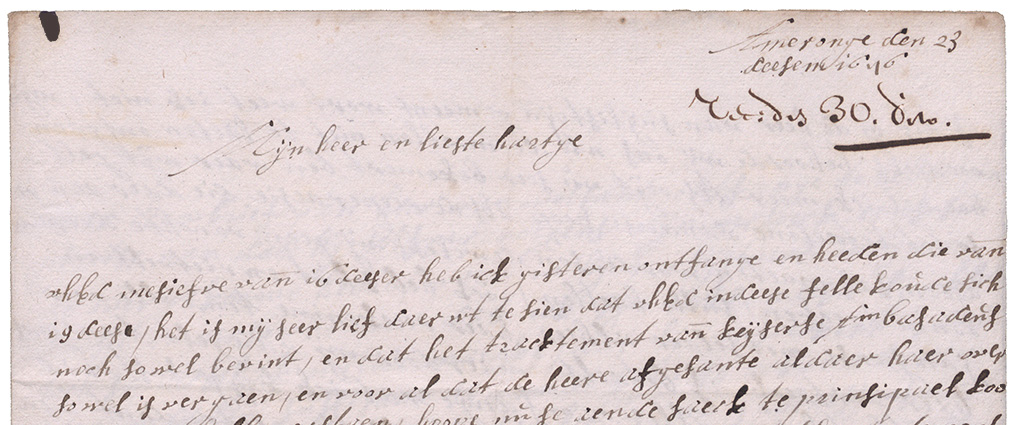 Ameronge den 23
deesem 1676
Rec: des 30. dito.
Mijn heer en lieste hartge
uhEd mesiefve van 16 deeser heb ick gisteren ontfange en heeden die van
19 deese, het is mij seer lief daer ut te sien dat uhEd in deese felle koude sich
noch so wel bevint, en dat het tracktement van keyserse Imbasadeus
so wel is vergaen, en voor al dat de heere afgesante aldaer haer over
nu se aende saeck te prinsipael koo